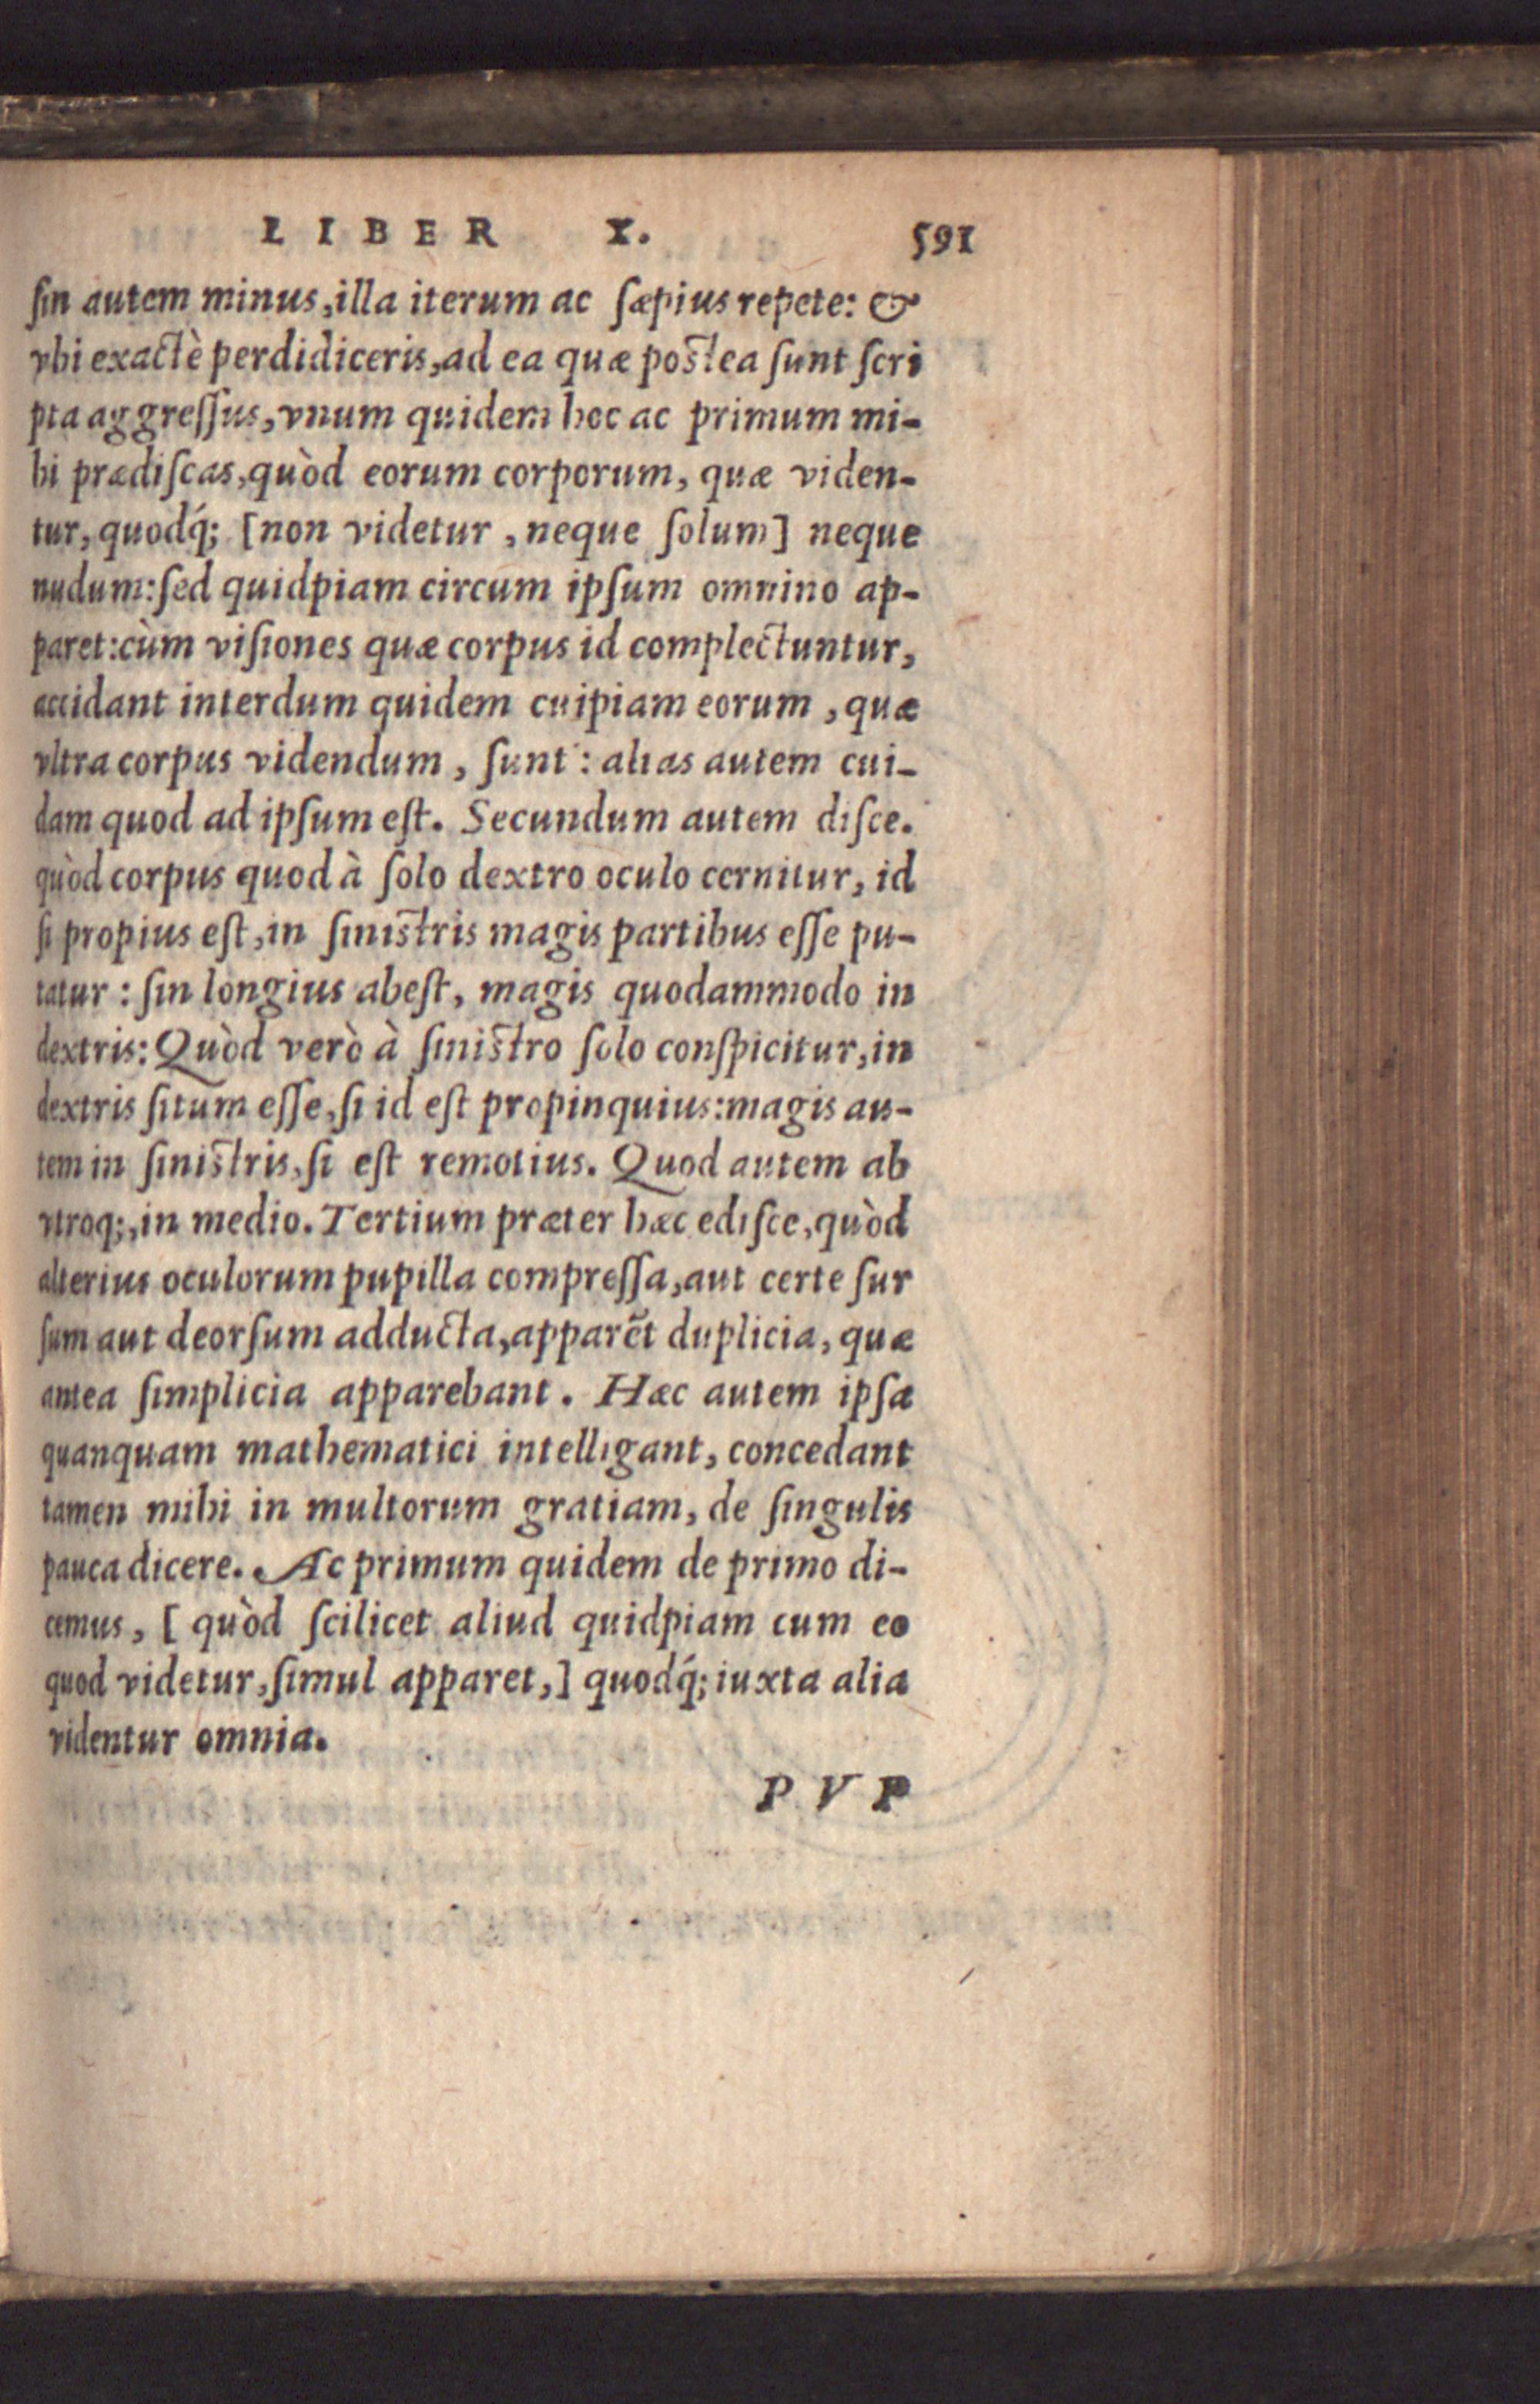 LIBER X. 591
ſin autem minus, illa iterum ac ſæpius repete: &
vbi exactè perdidiceris, ad ea quæ poſtea ſunt ſcri
pta aggreſſus, vnum quidem hoc ac primum mi-
hi prædiſcas, quòd eorum corporum, quæ viden-
tur, quodq́; [non videtur, neque ſolum] neque
nudum: ſed quidpiam circum ipſum omnino ap-
paret: cùm viſiones quæ corpus id complectuntur,
accidant interdum quidem cuipiam eorum, quæ
vltra corpus videndum, ſunt: alias autem cui-
dam quod ad ipſum eſt. Secundum autem diſce.
quòd corpus quod à ſolo dextro oculo cernitur, id
ſi propius eſt, in ſiniſtris magis partibus eſſe pu-
tatur: ſin longius abeſt, magis quodammodo in
dextris: Quòd verò à ſiniſtro ſolo conſpicitur, in
dextris ſitum eſſe, ſi id eſt propinquius: magis au-
tem in ſiniſtris, ſi eſt remotius. Quod autem ab
vtroq;, in medio. Tertium præter hæc ediſce, quòd
alterius oculorum pupilla compreſſa, aut certe ſur
ſum aut deorſum adducta, apparẽt duplicia, quæ
antea ſimplicia apparebant. Hæc autem ipſa
quanquam mathematici intelligant, concedant
tamen mihi in multorum gratiam, de ſingulis
pauca dicere. Ac primum quidem de primo di-
cemus, [quòd ſcilicet aliud quidpiam cum eo
quod videtur, ſimul apparet,] quodq́; iuxta alia
videntur omnia.
PVP